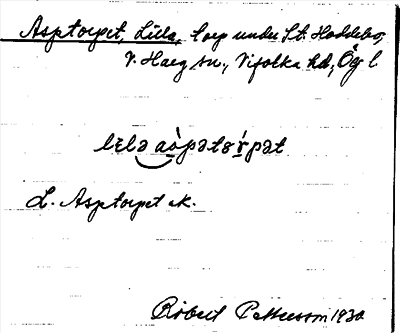 Asptorpet, Lilla, torp under St. Hoddebo,
V. Harg sn., Vifolka hd, Ög l.
lilə aspətorpət
L. Asptorpet ek.
Robert Pettersson 1930